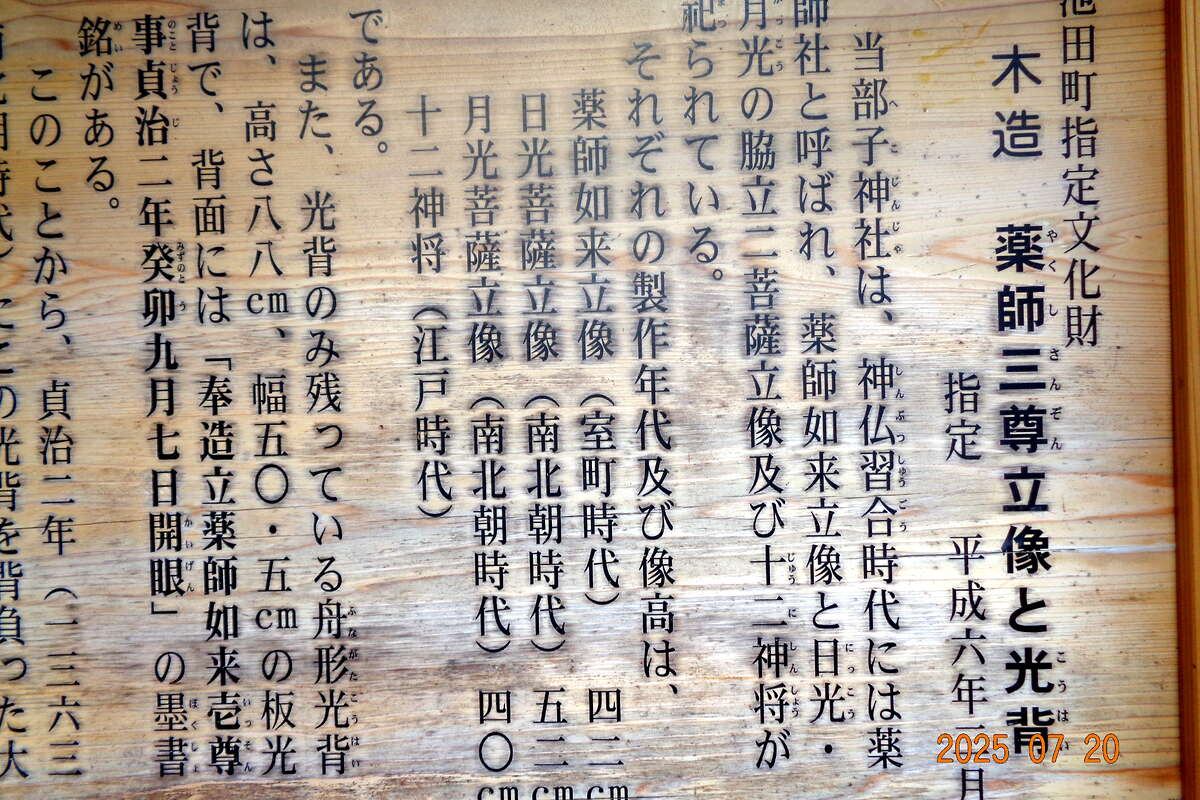 池田町指定文化財
木造 薬師三尊立像と光背
指定 平成六年 月
当部子神社は、神仏習合時代には薬
師社と呼ばれ、薬師如来立像と日光・
月光の脇立二菩薩立像及び十二神将が
祀られている。
それぞれの製作年代及び像高は、
薬師如来立像(室町時代) 四二cm
日光菩薩立像(南北朝時代) 五二cm
月光菩薩立像(南北朝時代) 四〇cm
十二神将(江戸時代)
である。
また、光背のみ残っている舟形光背
は、高さ八八cm、幅五〇・五cmの板光
背で、背面には「奉造立薬師如来壱尊
事貞治二年癸卯九月七日開眼」の墨書
銘がある。
このことから、貞治二年(一三六三
の光背を背負った大
2025 07 20